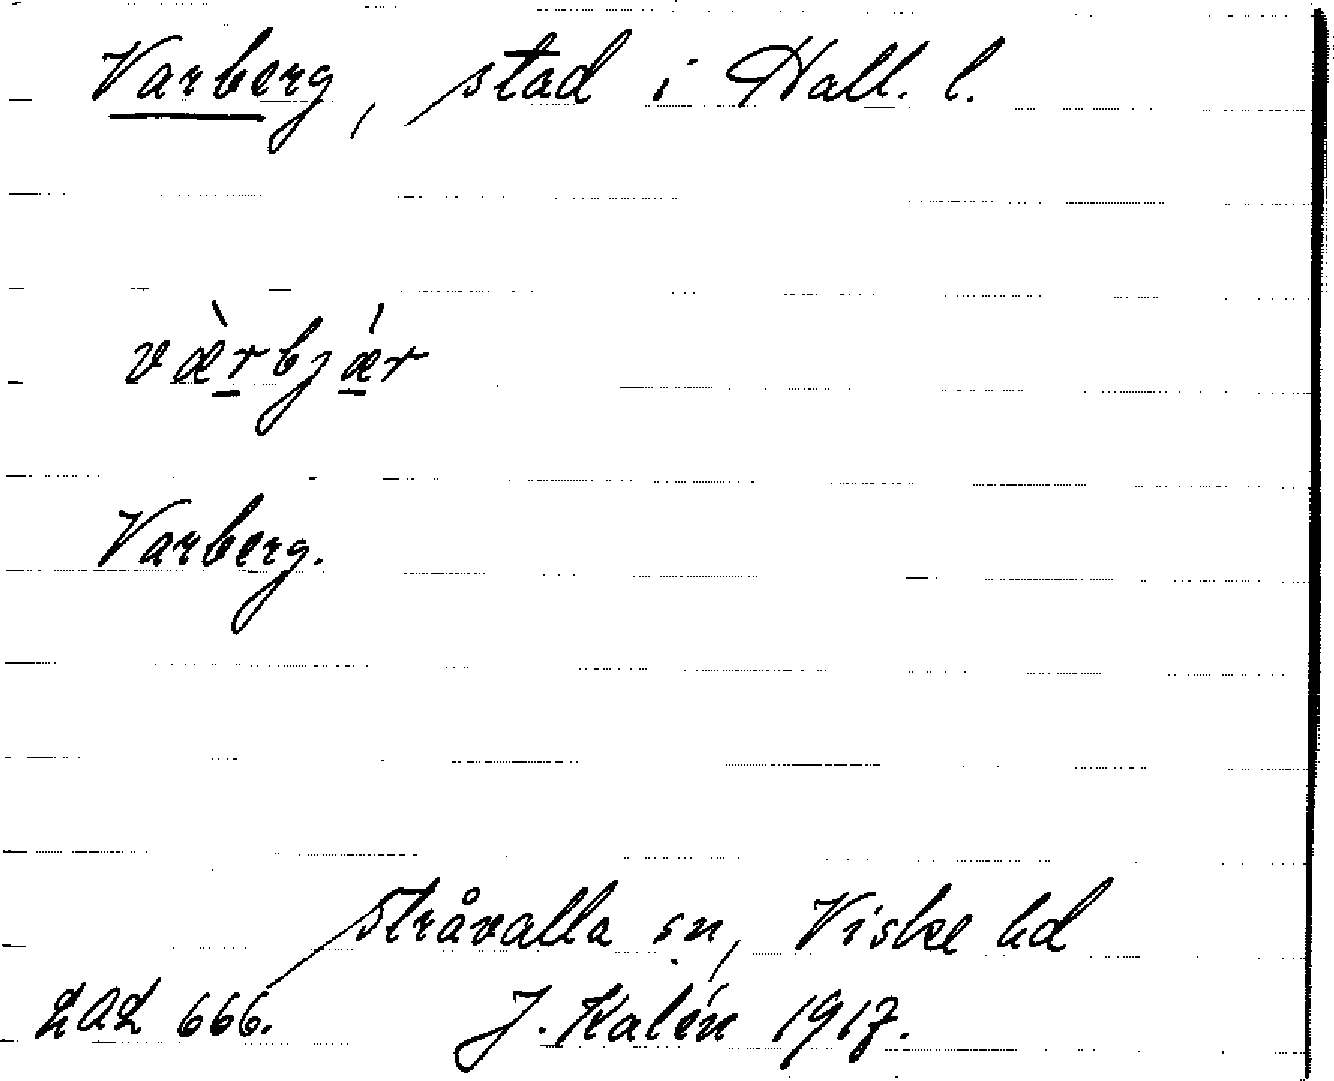 Varberg, stad i Hall. l.
væ̀rbjǽr
Varberg.
Stråvalla sn, Viske hd
LAL 666. J. Kalén 1917.